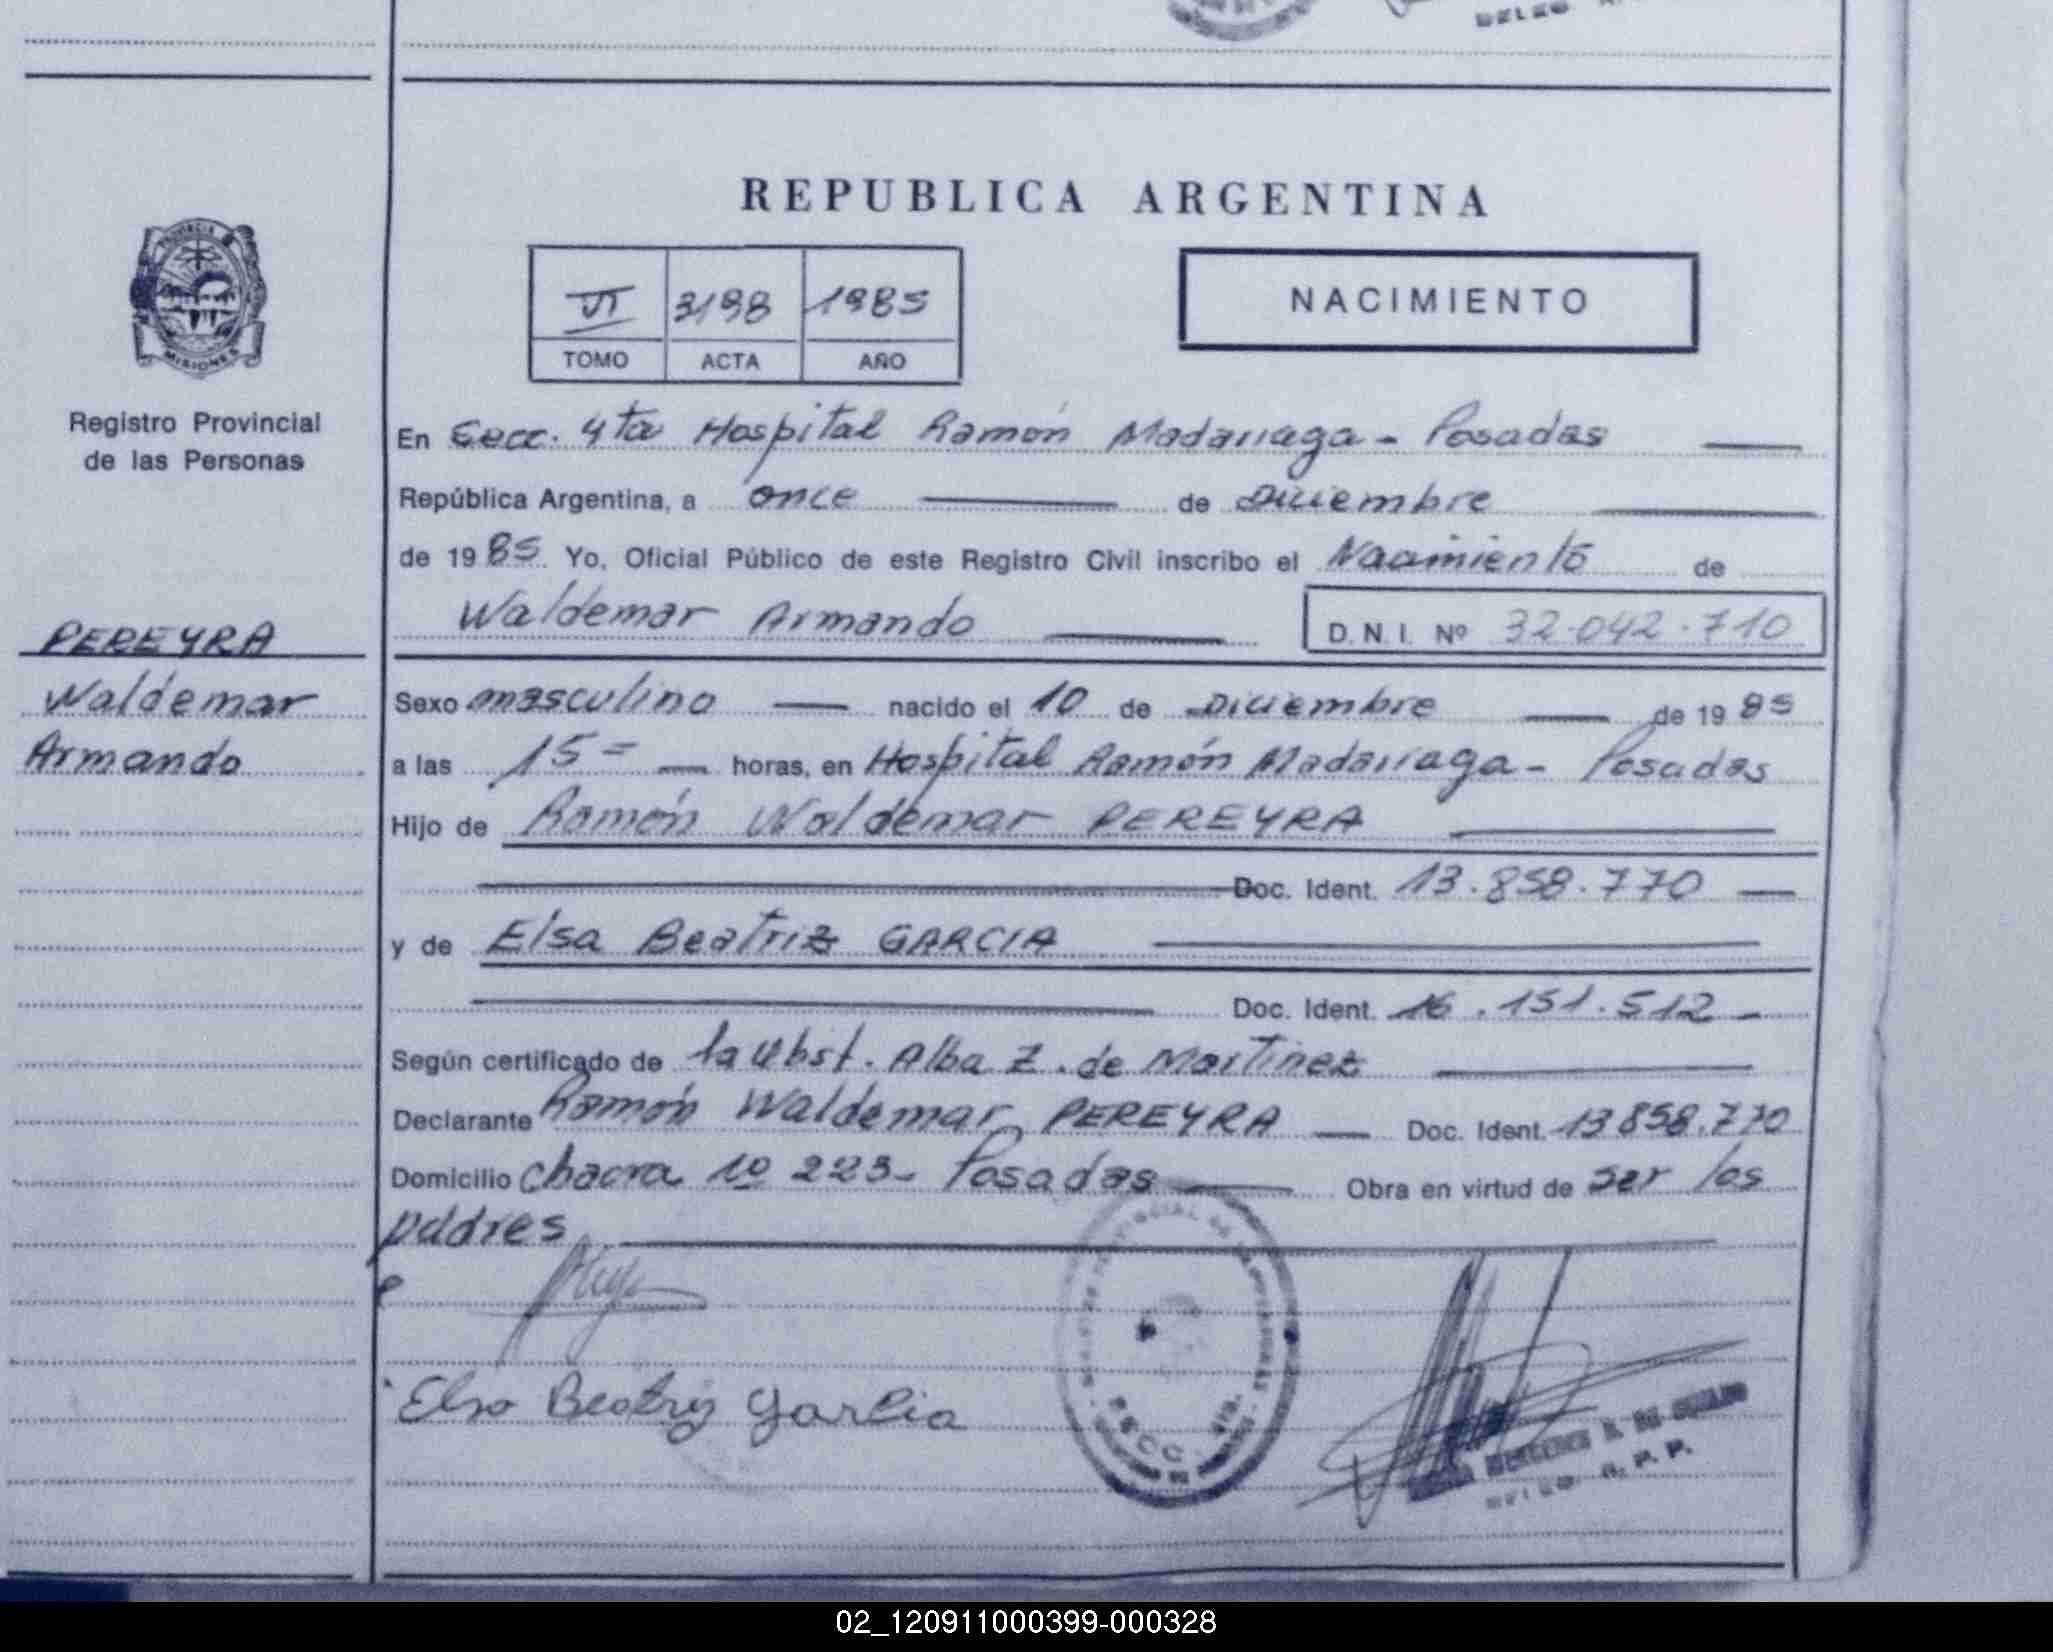 REPUBLICA ARGENTINA
PROVINCIA DE
MISIONES
Registro Provincial
de las Personas
VI 3198 1985
TOMO ACTA AÑO
NACIMIENTO
En Secc. 4ta Hospital Ramón Madariaga - Posadas
República Argentina, a once de Diciembre
de 1985. Yo, Oficial Público de este Registro Civil inscribo el Nacimiento de
Waldemar Armando D.N.I. Nº 32.042.710
PEREYRA
Waldemar
Armando
Sexo masculino nacido el 10 de Diciembre de 1985
a las 15= horas, en Hospital Ramón Madariaga - Posadas
Hijo de Ramón Waldemar PEREYRA
Doc. Ident. 13.858.770
y de Elsa Beatriz GARCIA
Doc. Ident. 16.151.512
Según certificado de la Obst. Alba Z. de Martinez
Declarante Ramón Waldemar PEREYRA Doc. Ident. 13858.770
Domicilio chacra 1º 223- Posadas Obra en virtud de ser los
padres
Elsa Beatriz Garcia
SECC.
R. P. P.
02_120911000399-000328